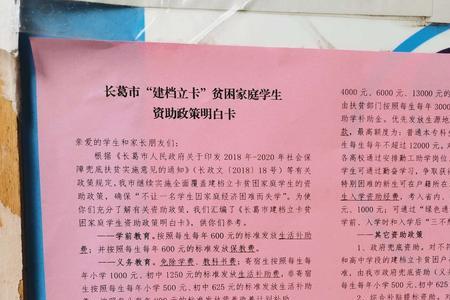 长葛市“建档立卡”贫困家庭学生
资助政策明白卡
亲爱的学生和家长朋友们：
根据《长葛市人民政府关于印发 2018 年-2020 年社会保
障兜底扶贫实施意见的通知》（长政文〔2018〕18 号）等有关
政策规定，我市继续实施全面覆盖建档立卡贫困家庭学生的资
助政策，确保“不让一名学生因家庭经济困难而失学”。为使
你们充分了解有关资助政策，我们汇编了《长葛市建档立卡贫
困家庭学生资助政策明白卡》，供你们参考。
——学前教育。按照每生每年 600 元的标准发放生活补助
费；并按照每生每年 600 元的标准发放保教费。
——义务教育。免除学费、教科书费；寄宿生按照每生每
年小学 1000 元、初中 1250 元的标准发放生活补助费，非寄宿
生按照每生每年小学 500 元、初中 625 元的标准发放生活补助
4000 元、6000 元、13000 元的
由扶贫部门按照每生每年 3000
助学补助金。优先发放生源地
款，最高额度为：普通本专科生
生每生每年不超过 12000 元。对
各高校通过安排勤工助学岗位
学生可通过勤奋学习，争取获得
特别困难的新生可在户籍所在
生入学资助经费，考入省内、
元、1000 元；可通过“绿色通
学前、入学时和入学后“三不
——其它资助政策
1、政府兜底资助。对不符
和高中学段的建档立卡贫困户
准，由我市政府兜底资助（义务
625 元的标准资助